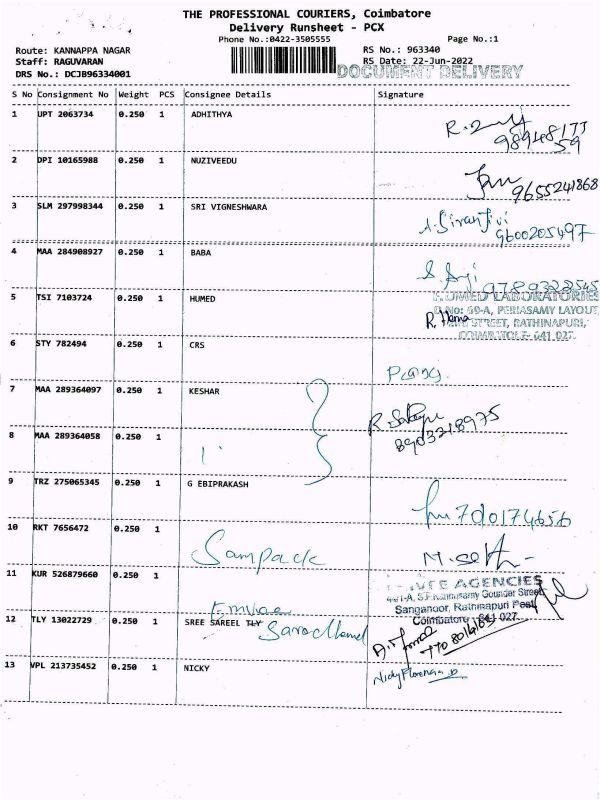 THE PROFESSIONAL COURIERS, Coimbatore
Delivery Runsheet - PCX
Phone No.:0422-3505555 Page No.:1
Route: KANNAPPA NAGAR RS No.: 963340
Staff: RAGUVARAN RS Date: 22-Jun-2022
DRS No.: DCJB96334001 DOCUMENT DELIVERY
S No Consignment No Weight PCS Consignee Details Signature
1 UPT 2063734 0.250 1 ADHITHYA
2 DPI 10165988 0.250 1 NUZIVEEDU
9655241868
3 SLM 297998344 0.250 1 SRI VIGNESHWARA
9600205497
4 MAA 284908927 0.250 1 BABA
5 TSI 7103724 0.250 1 HUMED
HUMED LABORATORIES
D.No: 69-A, PERIASAMY LAYOUT,
R. Hema STREET, RATHINAPURI,
COIMBATORE- 641 027.
6 STY 782494 0.250 1 CRS
7 MAA 289364097 0.250 1 KESHAR
8903218975
8 MAA 289364058 0.250 1
9 TRZ 275065345 0.250 1 G EBIPRAKASH
10 RKT 7656472 0.250 1
Sampack
11 KUR 526879660 0.250 1
AGENCIES
Gounder Street
Sanganoor, Rathinapuri Post
Coimbatore - 641 027
12 TLY 13022729 0.250 1 SREE SAREEL TLY
13 VPL 213735452 0.250 1 NICKY